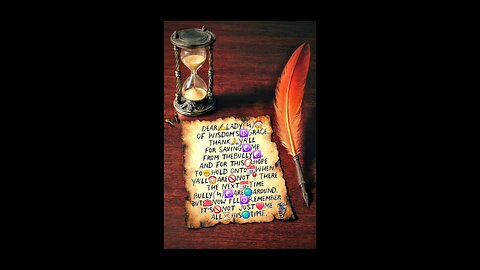 DEAR LADY(S)
OF WISDOMS GRACE
THANK YA'LL
FOR SAVING ME
FROM THE BULLY
AND FOR THIS HOPE
TO HOLD ONTO WHEN
YA'LL ARE NOT THERE
THE NEXT TIME
BULLY(S) ARE AROUND.
BUT NOW I'LL REMEMBER
IT'S NOT JUST ME
ALL THIS TIME.